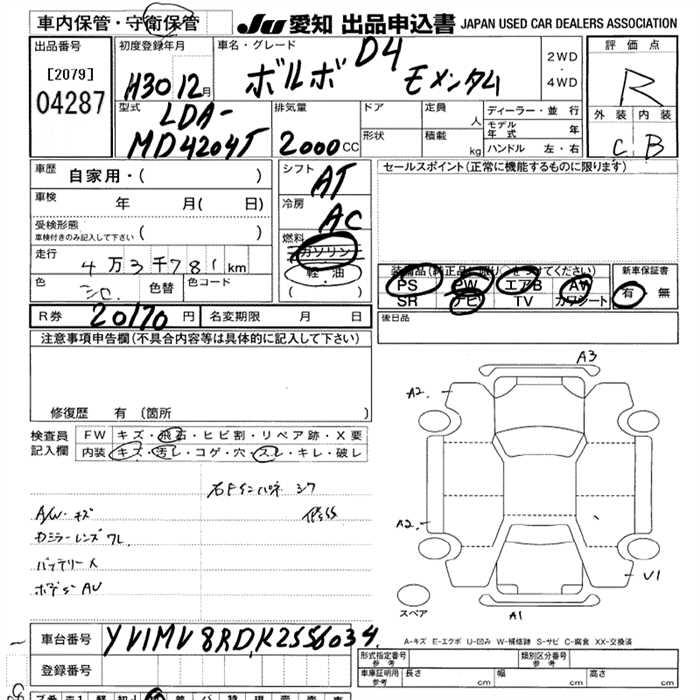 車内保管・守衛保管 JU 愛知 出品申込書 JAPAN USED CAR DEALERS ASSOCIATION
出品番号 初度登録年月 車名・グレード 評価点
[2079] 04287 H30 12月 ボルボ D4 モメンタム 2WD・4WD R
型式 排気量 ドア 定員 人 ディーラー・並行 外装 内装
LDA-MD4204T 2000CC 形状 積載 kg モデル年式 年 C B
ハンドル 左・右
車歴 自家用・( ) シフト AT セールスポイント(正常に機能するものに限ります)
車検 年 月( 日) 冷房 AC
受検形態 車検付きのみ記入して下さい ( ) 燃料 ガソリン
走行 4万3千781km 軽・油
色 シロ 色替 色コード ( )
装備品(純正品に限り○をつけてください) 新車保証書
PS PW エアB AW 有 無
SR ナビ TV カワシート
R券 20170円 名変期限 月 日 後日品
注意事項申告欄(不具合内容等は具体的に記入して下さい)
修復歴 有 (箇所
検査員記入欄 FW キズ・飛石・ヒビ割・リペア跡・X要
内装 キズ・汚レ・コゲ・穴・スレ・キレ・破レ
A/W・キズ
バッテリー
A3
A2
A2
V1
A1
スペア
A-キズ E-エクボ U-凹み W-補修跡 S-サビ C-腐食 XX-交換済
車台番号 YV1MV8RDK2556034
登録番号
形式指定番号 参考 類別区分番号 参考
車庫証明用 参考 長さ cm 幅 cm 高さ cm